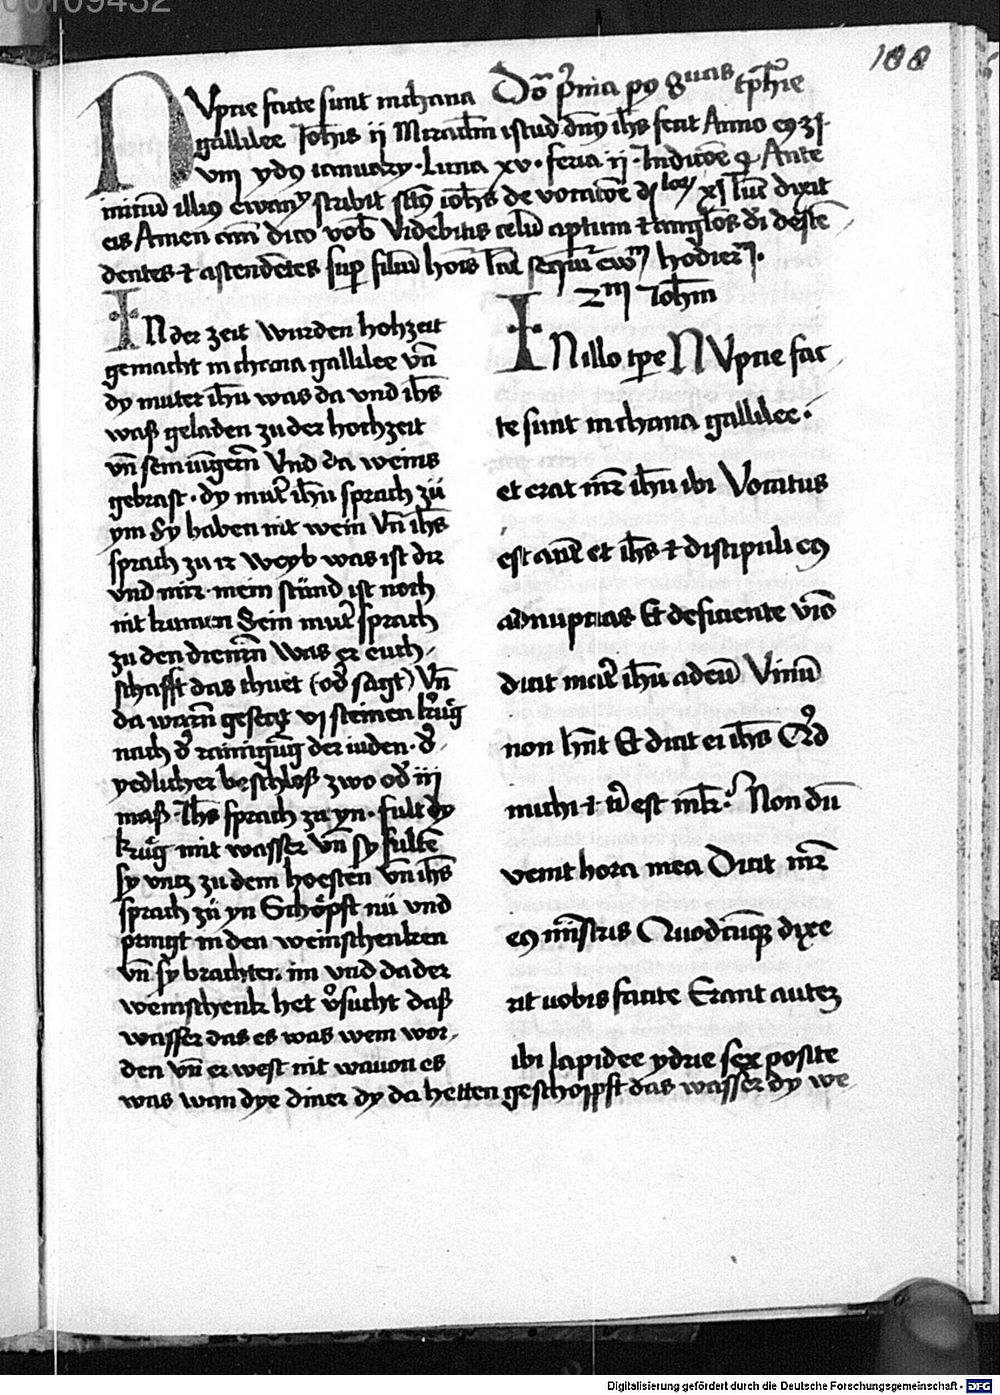 188
Do͂ p̃ma pꝰ octauas epyphie
NVptie facte sunt in chana
gallilee Joh̄is ij Miraculm̄ istud dn̄s ih̄s fecit Anno
viij ydꝰ ianuarij · Luna xv · feria ij · Indictōe Ante
initiū illiꝰ ewan scribit sctꝰ ioh̄s de vocatōe dixit
eis Amen am̄ dico vob̄ Videbitis celū aptum ⁊ anglōs dī descē
dentes ⁊ ascendētes sup filiū hoīs
IN der zeit wurden hohzeit
gemacht in chana gallilee vn̄
dy muter ih̄u was da vnd ih̄s
waß geladen zu der hochzeit
vn̄ sein iūgern̄ Vnd da weins
gebrast · dy mut̉ ih̄u sprach zü
ym Sy haben nit wein Vn̄ ih̄s
sprach zu ir Weyb was ist dir
vnd mir · mein stünd ist noch
nit kumen Sein mut̉ sprach
zu den dienern̄ Was er euch
schafft das thuet (od̉ sagt) Vn̄
da warn̄ gesetzt vj steinen krüg
nach d̉ rainigūg der iuden · d̉
yedlicher beschloß zwo od̉ iij
maß · Ih̄s sprach zu yn · fult dy
krüg mit wasser vn̄ sy fultē
sy vntz zu dem hoesten Vn̄ ih̄s
sprach zü yn Schöpft nü vnd
pringt in den weinschenken
vn̄ sy brachten im vnd da der
weinschenk het v̉sucht daß
wasser das es was wein wor
den vn̄ er west nit wauon es
was wan dye diner dy da hetten geschöpft das wasser dy we
2m Joh̄m
IN illo tp̄e NVptie fac
te sunt in chana gallilee ·
et erat mr̄ ih̄u ibi Vocatus
est autē et ih̄s ⁊ discipuli eꝰ
ad nuptias Et deficiente vīo
dicit mat̉ ih̄u ad eū Vinū
non hn̄t Et dicit ei ih̄s Qd̉
michi ⁊ t͛ est ml̄r · Non dū
venit hora mea Dicit mr̄
eꝰ mīstris Quodcūqꝫ dixe
rit uobis facite Erant autꝫ
ibi lapidee ydrie sex posite
Digitalisierung gefördert durch die Deutsche Forschungsgemeinschaft - DFG